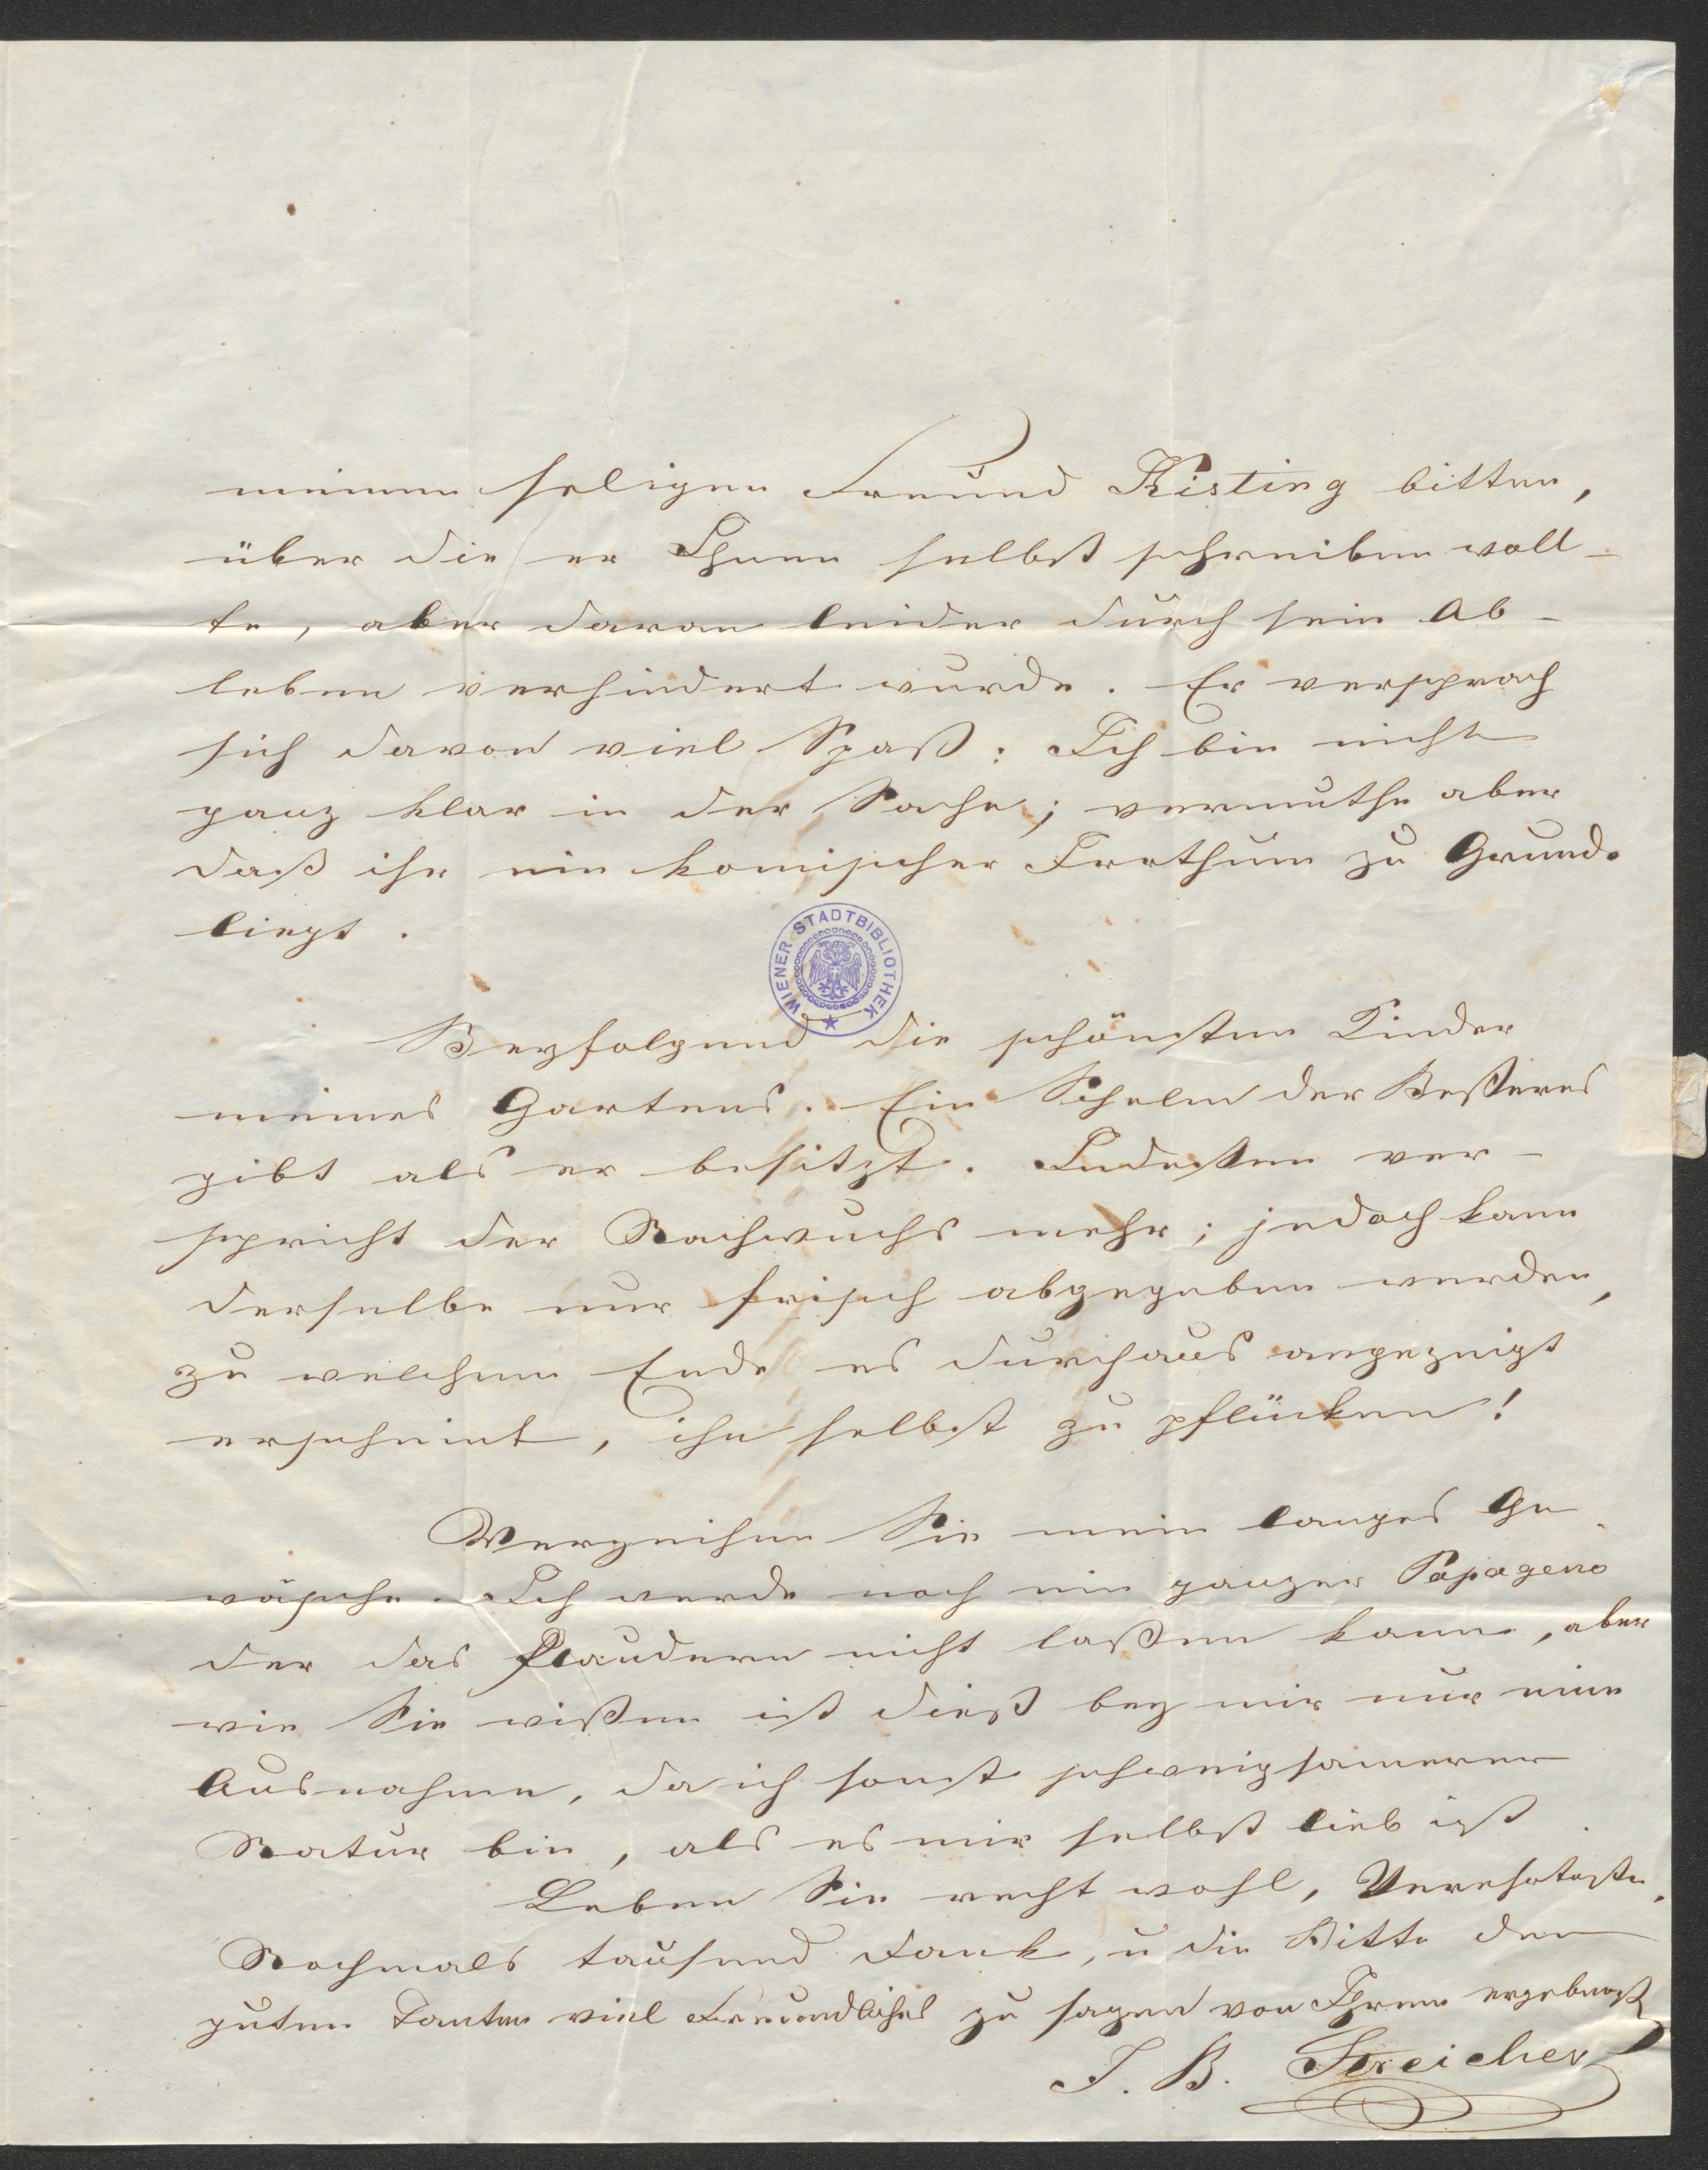 meinem seligen Freund Kisting bitten,
über die er Ihnen selbst schreiben woll-
te, aber daran leider durch sein Ab-
leben verhindert wurde. Er versprach
sich davon viel Spaß: Ich bin nicht
ganz klar in der Sache; vermuthe aber
daß ihr ein komischer Irrthum zu Grunde
liegt.
WIENER STADTBIBLIOTHEK
Beyfolgend die schönsten Kinder
meines Gartens. Ein Schelm der Besseres
gibt als er besitzt. Indessen ver-
spricht der Nachwuchs mehr; jedoch kann
derselbe nur frisch abgegeben werden,
zu welchem Ende es durchaus angezeigt
erscheint, ihn selbst zu pflücken!
Verzeihen Sie mein langes Ge-
wäsche. Ich werde noch ein ganzer Papageno
der das Plaudern nicht laßen kann, aber
wie Sie wißen ist dieß bey mir nur eine
Ausnahme, da ich sonst schweigsamerer
Natur bin, als es mir selbst lieb ist.
Leben Sie recht wohl, Verehrteste.
Nochmals tausend Dank, u die Bitte den
guten Tanten viel Freundliches zu sagen von Ihrem ergebenst
J. B. Streicher